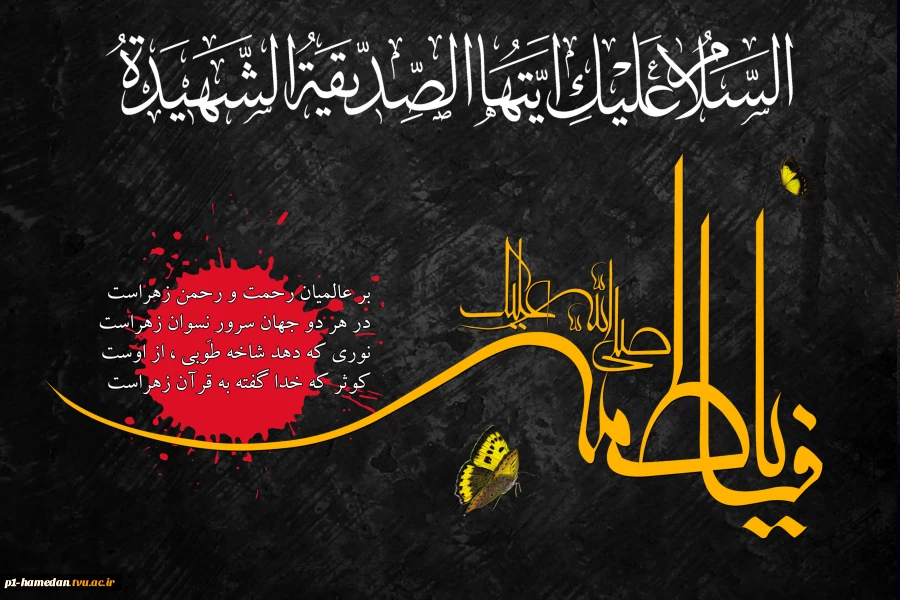 السَّلامُ عَلَيْكِ ايَّتُهَا الصِّدِّيقَةُ الشَّهِيدَةُ
يا فاطمه
صلی الله علیک
بر عالمیان رحمت و رحمن زهراست
در هر دو جهان سرور نسوان زهراست
نوری که دهد شاخه طَوبی ، از اوست
کوثر که خدا گفته به قرآن زهراست
p1-hamedan.tvu.ac.ir